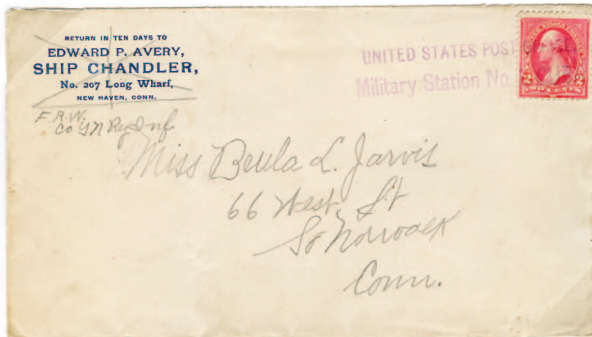 RETURN IN TEN DAYS TO
EDWARD P. AVERY,
SHIP CHANDLER,
No. 207 Long Wharf,
NEW HAVEN, CONN.
UNITED STATES POST
Military Station No.
F.R.W.
Co
Miss Beula L. Jarvis
66 West St
So Norwalk
Conn.